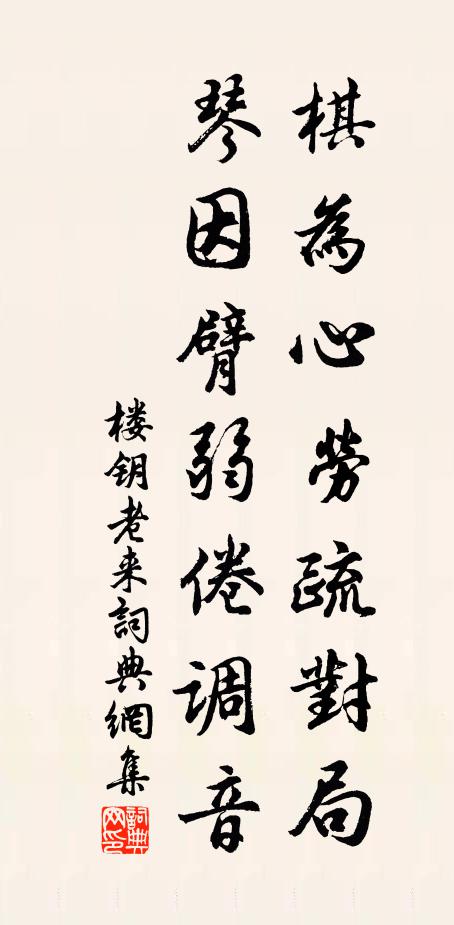 棋為心勞疏對局
琴因臂弱倦调音
楼钥老来詞典網集
詞典网印